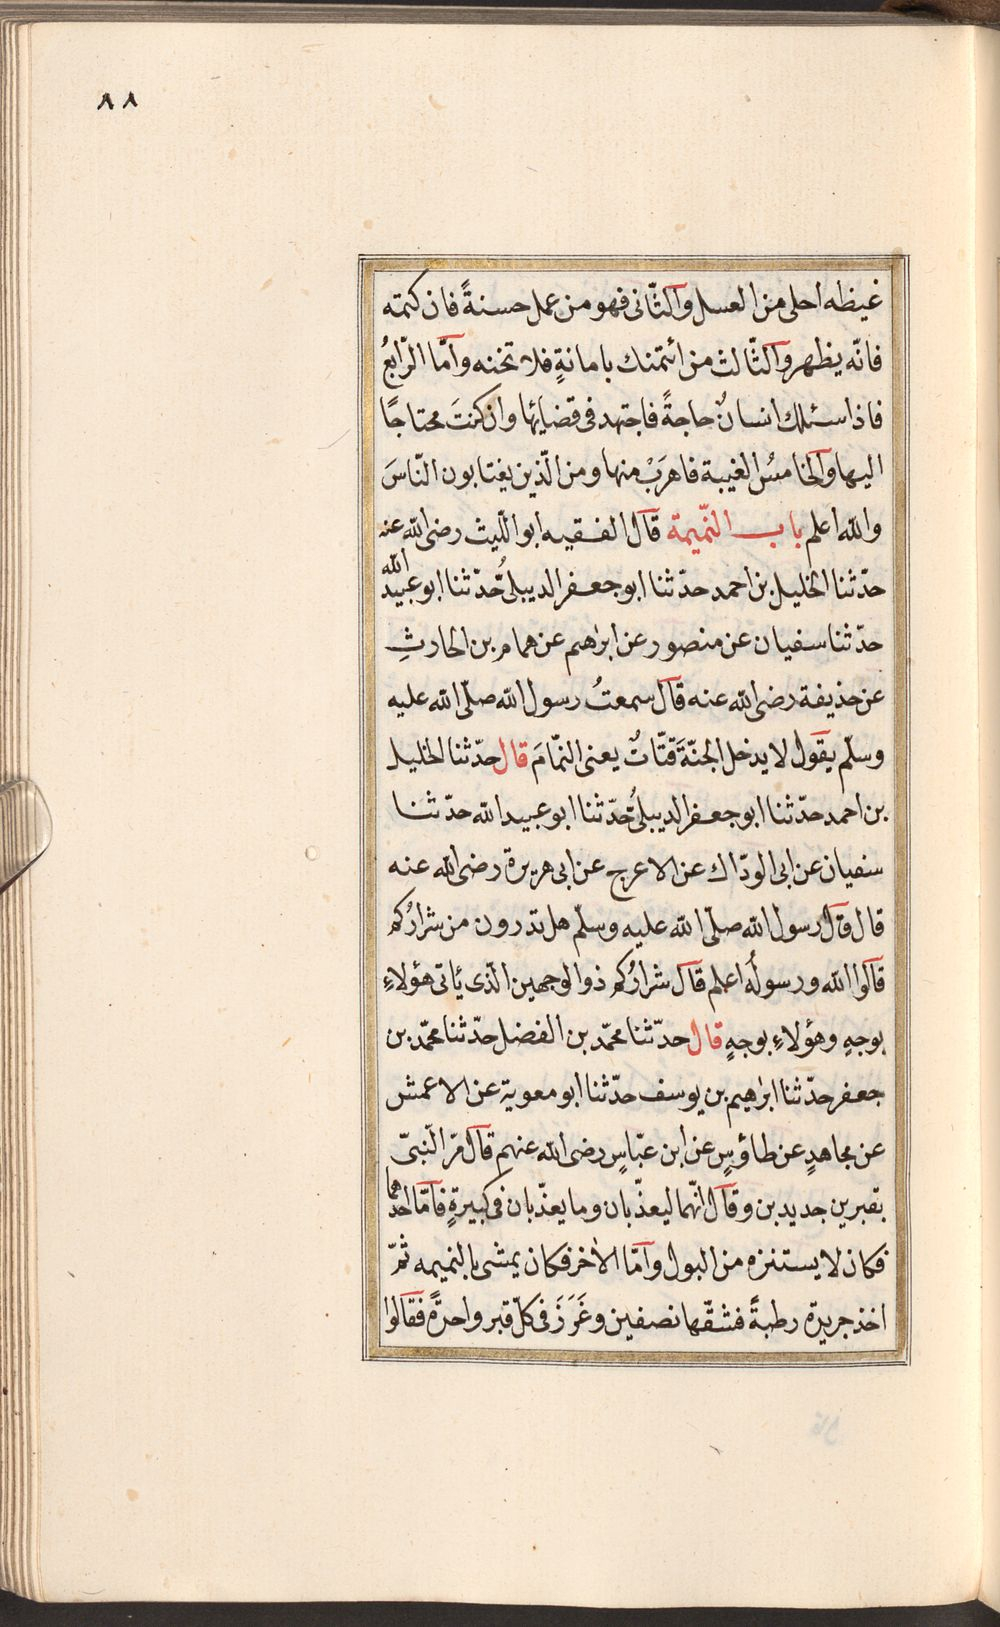 ٨٨
غيظه احلى من العسل والثّانى فهو من عمل حسنةً فان كتمته
فانّه يظهر والثّالث من ائتمنك بامانةٍ فلا تخنه وامّا الرّابعُ
فاذا سئلك انسانٌ حاجةً فاجتهد فى قضايئها وان كنتَ محتاجًا
اليها والخامسُ الغيبة فاهربْ منها ومن الّذين يغتابون النّاسَ
والله اعلم باب النّميمة قال الفقيه ابو اللّيث رضى الله عنه
حدّثنا الخليل بن احمد حدّثنا ابو جعفر الديبلىُّ حدّثنا ابو عبيد الله
حدّثنا سفيان عن منصور عن ابرٰهم عن همام بن الحارثِ
عن حذيفة رضى الله عنه قال سمعتُ رسول الله صلّى الله عليه
وسلّم يقول لا يدخل الجنّةَ قتّاتٌ يعنى النّمّامَ قال حدّثنا الخليل
بن احمد حدّثنا ابو جعفر الديبلىُّ حدّثنا ابو عبيد الله حدّثنا
سفيان عن ابى الودّاك عن الاعرج عن ابى هريرة رضى الله عنه
قال قال رسول الله صلّى الله عليه وسلّم هل تدرون من شرارُكم
قالوا الله ورسولُه اعلم قال شرارُكم ذوالوجهين الّذى يأتى هؤلاءِ
بوجهٍ وهؤلاءِ بوجهٍ قال حدّثنا محمّد بن الفضل حدّثنا محمّد بن
جعفر حدّثنا ابرٰهيم بن يوسف حدّثنا ابو معوية عن الاعمش
عن مجاهدٍ عن طاؤسٍ عن ابن عبّاسٍ رضى الله عنهم قال مرّ النّبىّ
بقبرين جديدين وقال انّهما ليعذّبان وما يعذّبان فى كبيرةٍ فامّا احدهما
فكان لا يستنزه من البول وامّا الاٰخر فكان يمشى بالنميمه ثمّ
اخذ جريدة رطبةً فشقّها نصفين وغَرَزَ فى كلّ قبر واحدةً فقالوا